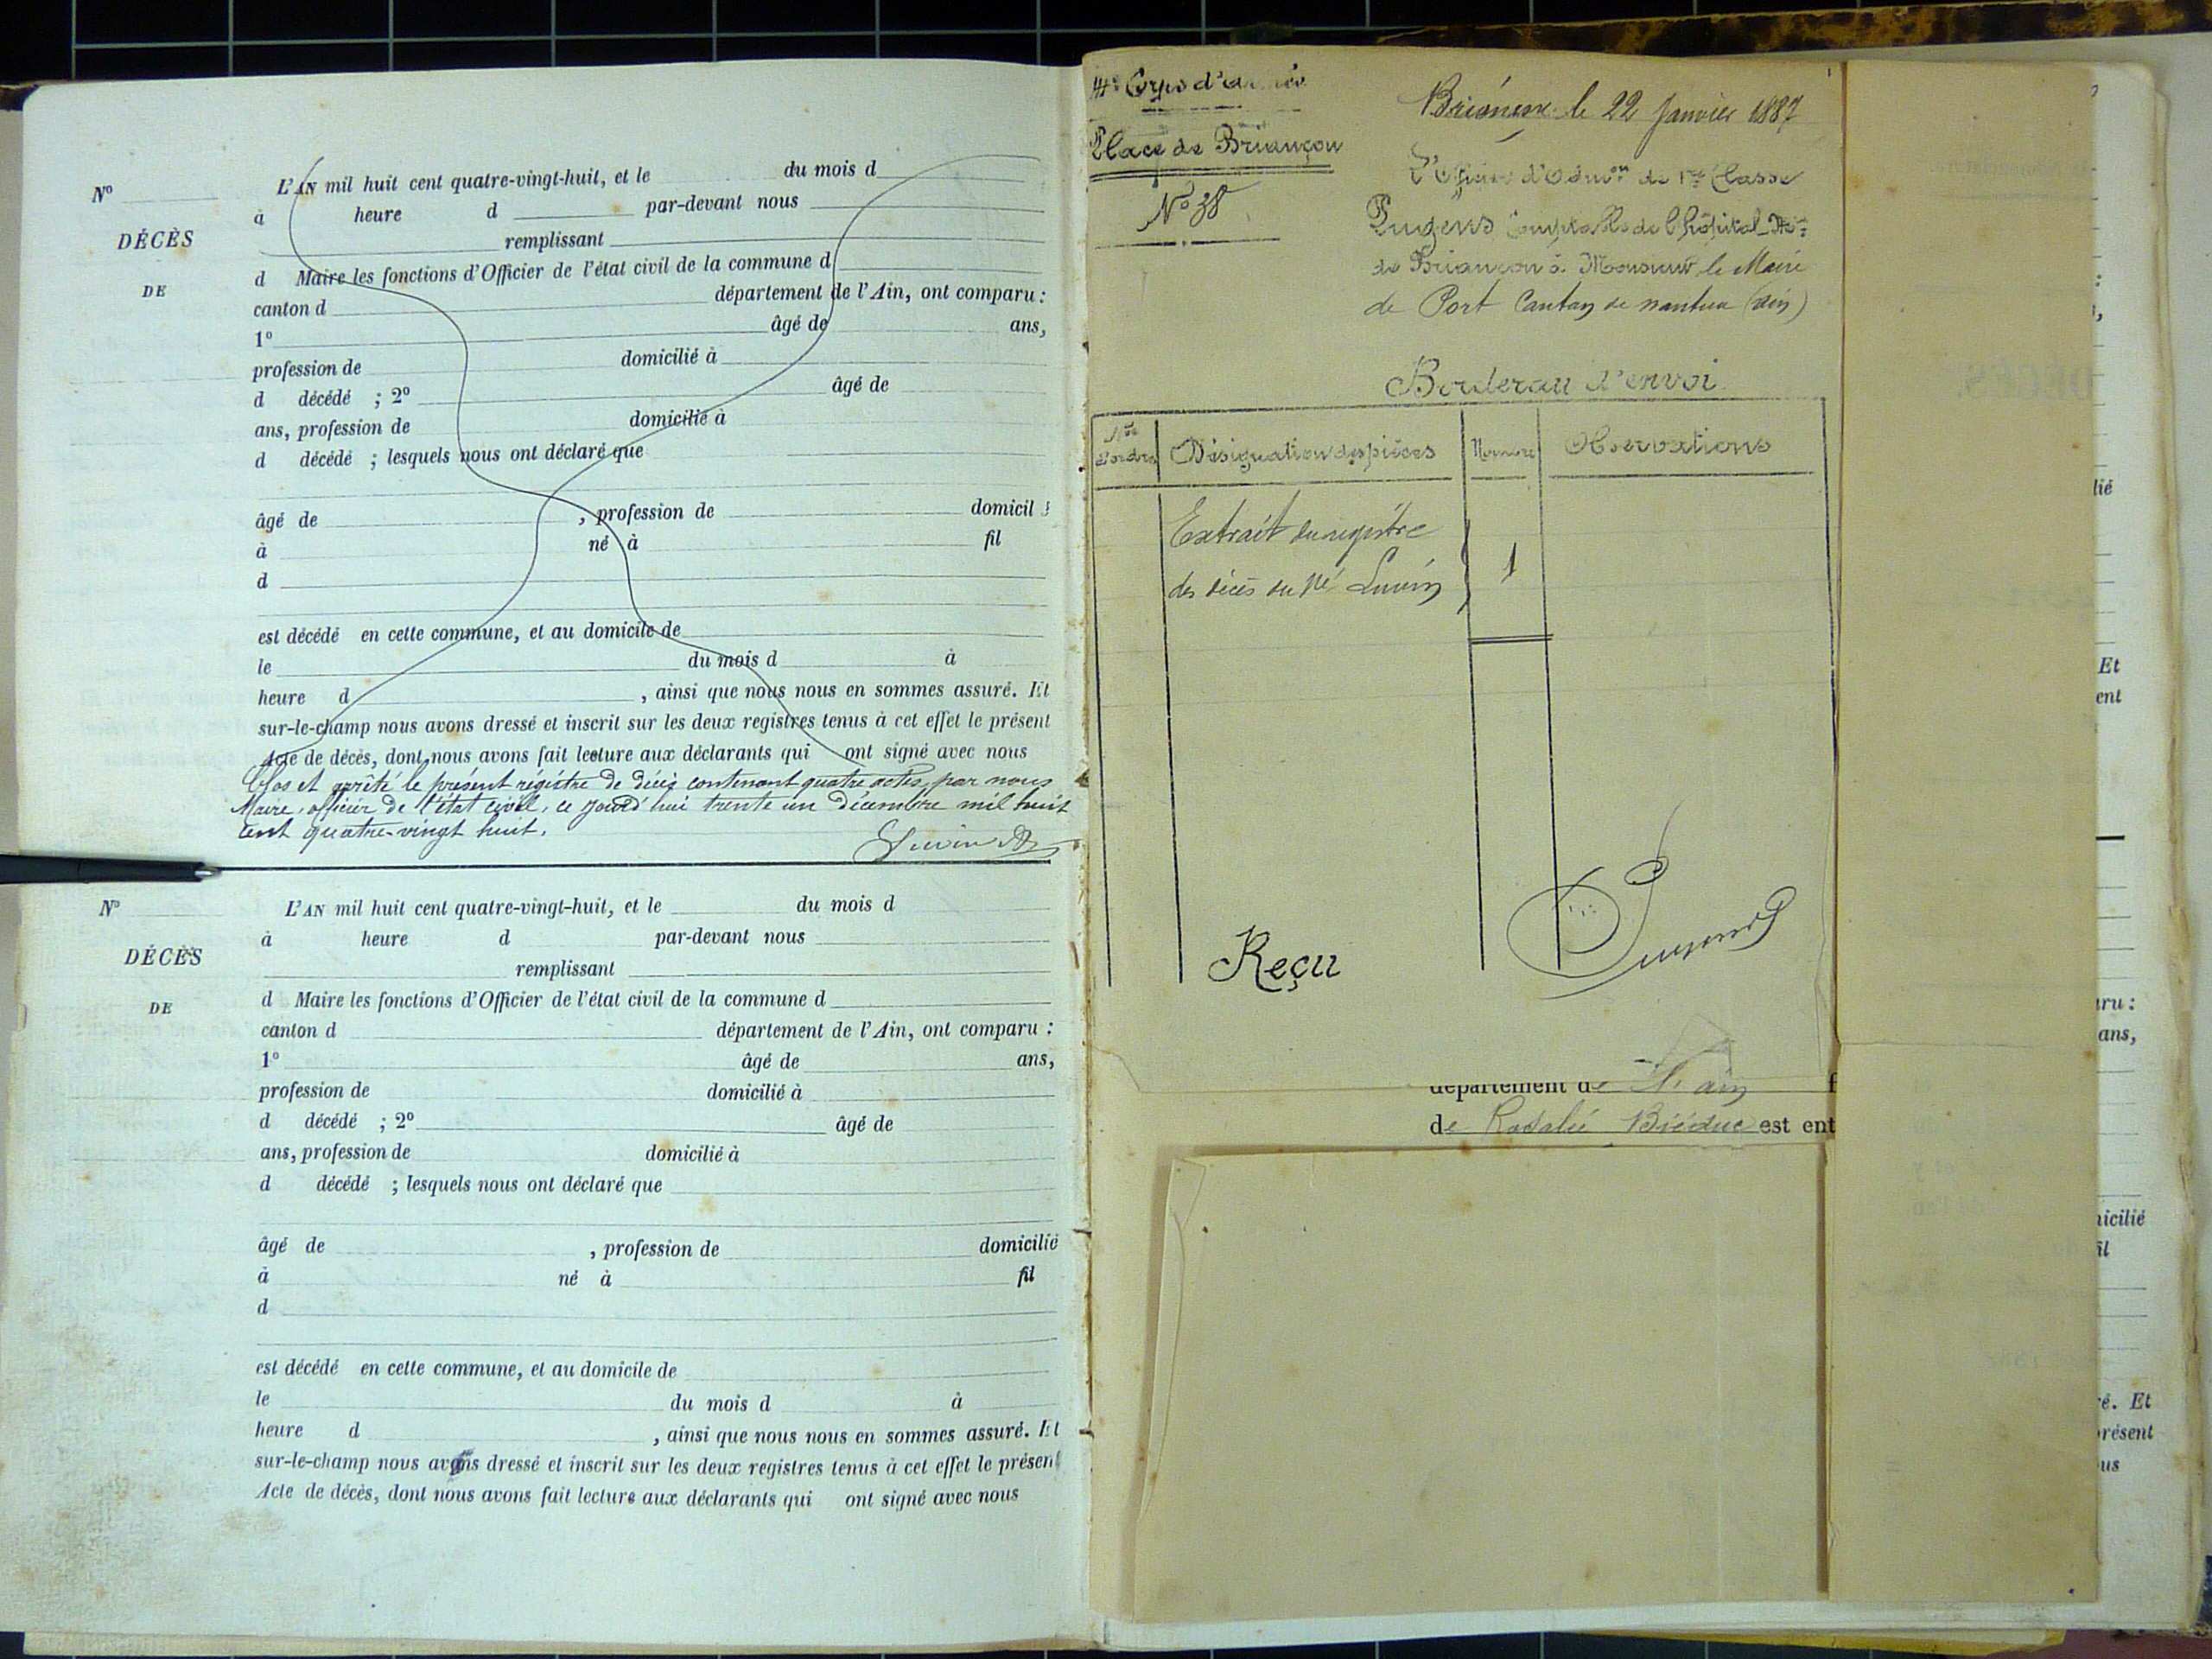 N° L'AN mil huit cent quatre-vingt-huit, et le du mois d
à heure d par-devant nous
DÉCÈS
remplissant
DE
d Maire les fonctions d'Officier de l'état civil de la commune d
canton d département de l'Ain, ont comparu :
1° âgé de ans,
profession de domicilié à
d décédé ; 2° âgé de
ans, profession de domicilié à
d décédé ; lesquels nous ont déclaré que
âgé de , profession de domicil
à né à fil
d
est décédé en cette commune, et au domicile de
le du mois d à
heure d , ainsi que nous nous en sommes assuré. Et
sur-le-champ nous avons dressé et inscrit sur les deux registres tenus à cet effet le présent
Acte de décès, dont nous avons fait lecture aux déclarants qui ont signé avec nous
Clos et arrêté le présent régistre de décès contenant quatre actes, par nous
Maire, officier de l'état civil, ce jourd'hui trente un décembre mil huit
cent quatre-vingt huit.
N° L'AN mil huit cent quatre-vingt-huit, et le du mois d
à heure d par-devant nous
DÉCÈS
remplissant
DE
d Maire les fonctions d'Officier de l'état civil de la commune d
canton d département de l'Ain, ont comparu :
1° âgé de ans,
profession de domicilié à
d décédé ; 2° âgé de
ans, profession de domicilié à
d décédé ; lesquels nous ont déclaré que
âgé de , profession de domicilié
à né à fil
d
est décédé en cette commune, et au domicile de
le du mois d à
heure d , ainsi que nous nous en sommes assuré. Et
sur-le-champ nous avons dressé et inscrit sur les deux registres tenus à cet effet le présent
Acte de décès, dont nous avons fait lecture aux déclarants qui ont signé avec nous
Corps d'armée
Place de Briançon
N° 38
Briançon le 22 Janvier 1887
L'Officier d'Admon de 1re Classe
Pugens Comptable de l'hôpital Mre
de Briançon à Monsieur le Maire
de Port Canton de nantua (ain)
Bordereau d'envoi
Nos d'ordre Désignation des pièces Nombre Observations
Extrait du registre
des décès du né 1
Reçu
Pugens
département de l'ain f
de Rosalie est ent
lié
Et
ent
aru :
ans,
icilié
il
é. Et
résent
us